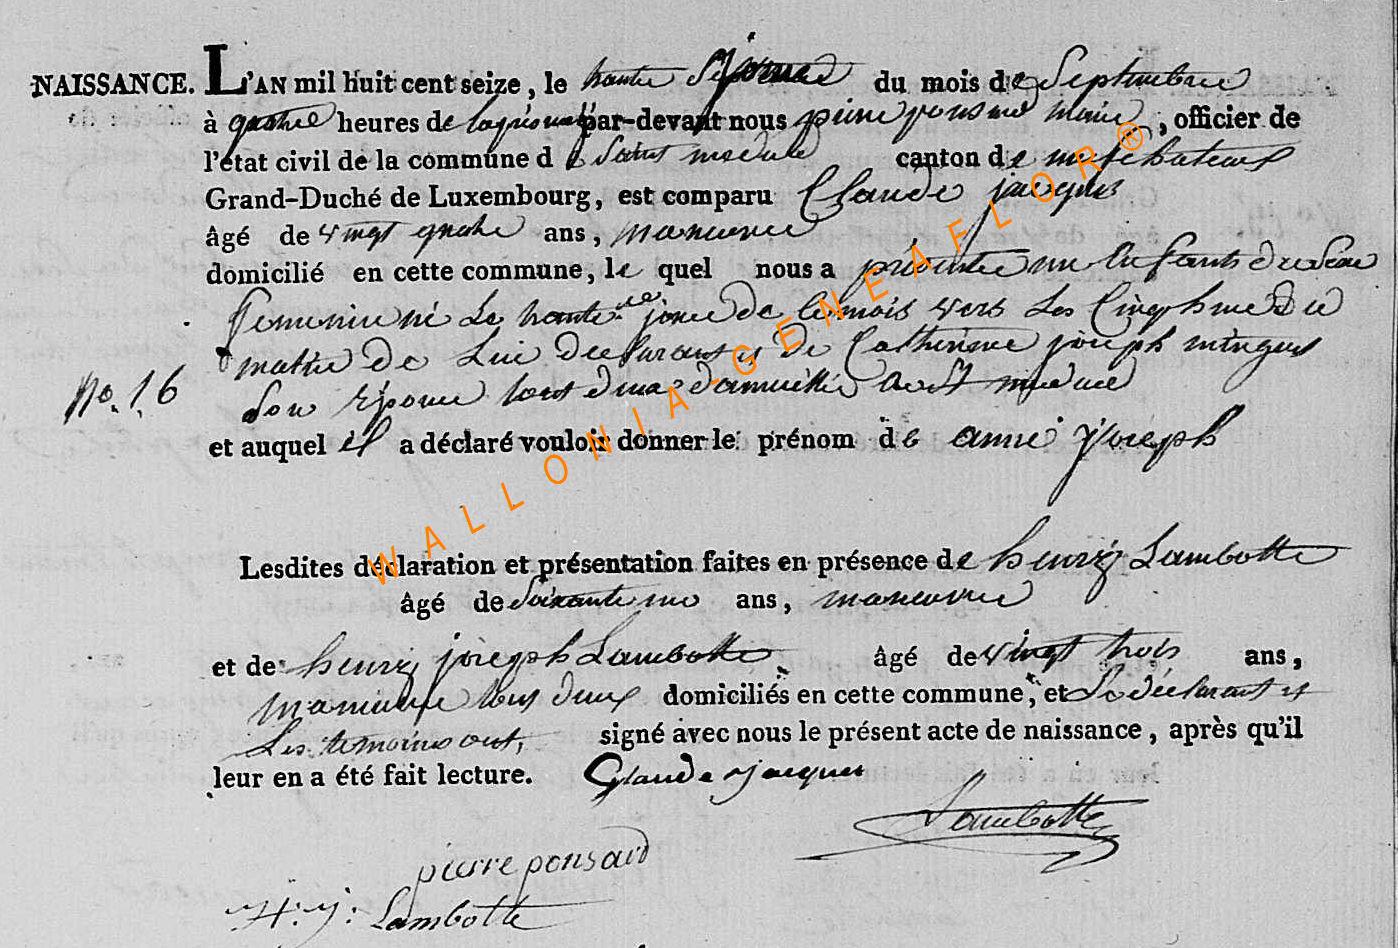 NAISSANCE. L'AN mil huit cent seize, le trante du mois de Septembre
à quatre heures de par-devant nous pierre ponsard Maire, officier de
l'état civil de la commune de Saint medard canton de neufchateaux
Grand-Duché de Luxembourg, est comparu Claude jacques
âgé de vingt quatre ans, maneuvre
domicilié en cette commune, le quel nous a présenté un enfants du sexe
feminin né Le trante jour de ce mois vers Les Cinq heures du
matin de Lui declarant et de Catherine joseph
No. 16
Son épouse tous deux domiciliés a St medard
et auquel il a déclaré vouloir donner le prénom de anne joseph
Lesdites déclaration et présentation faites en présence de henry Lambotte
âgé de Soixante ans, maneuvre
et de henry joseph Lambotte âgé de vingt trois ans,
maneuvre tous deux domiciliés en cette commune, et Le déclarant et
Les temoins ont, signé avec nous le présent acte de naissance, après qu'il
leur en a été fait lecture. Glaude jacques
Lambotte
pierre ponsard
H: j: Lambotte
WALLONIA-GENEAFLOR®